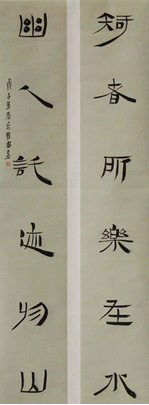 知者所樂在水
幽人託迹物山